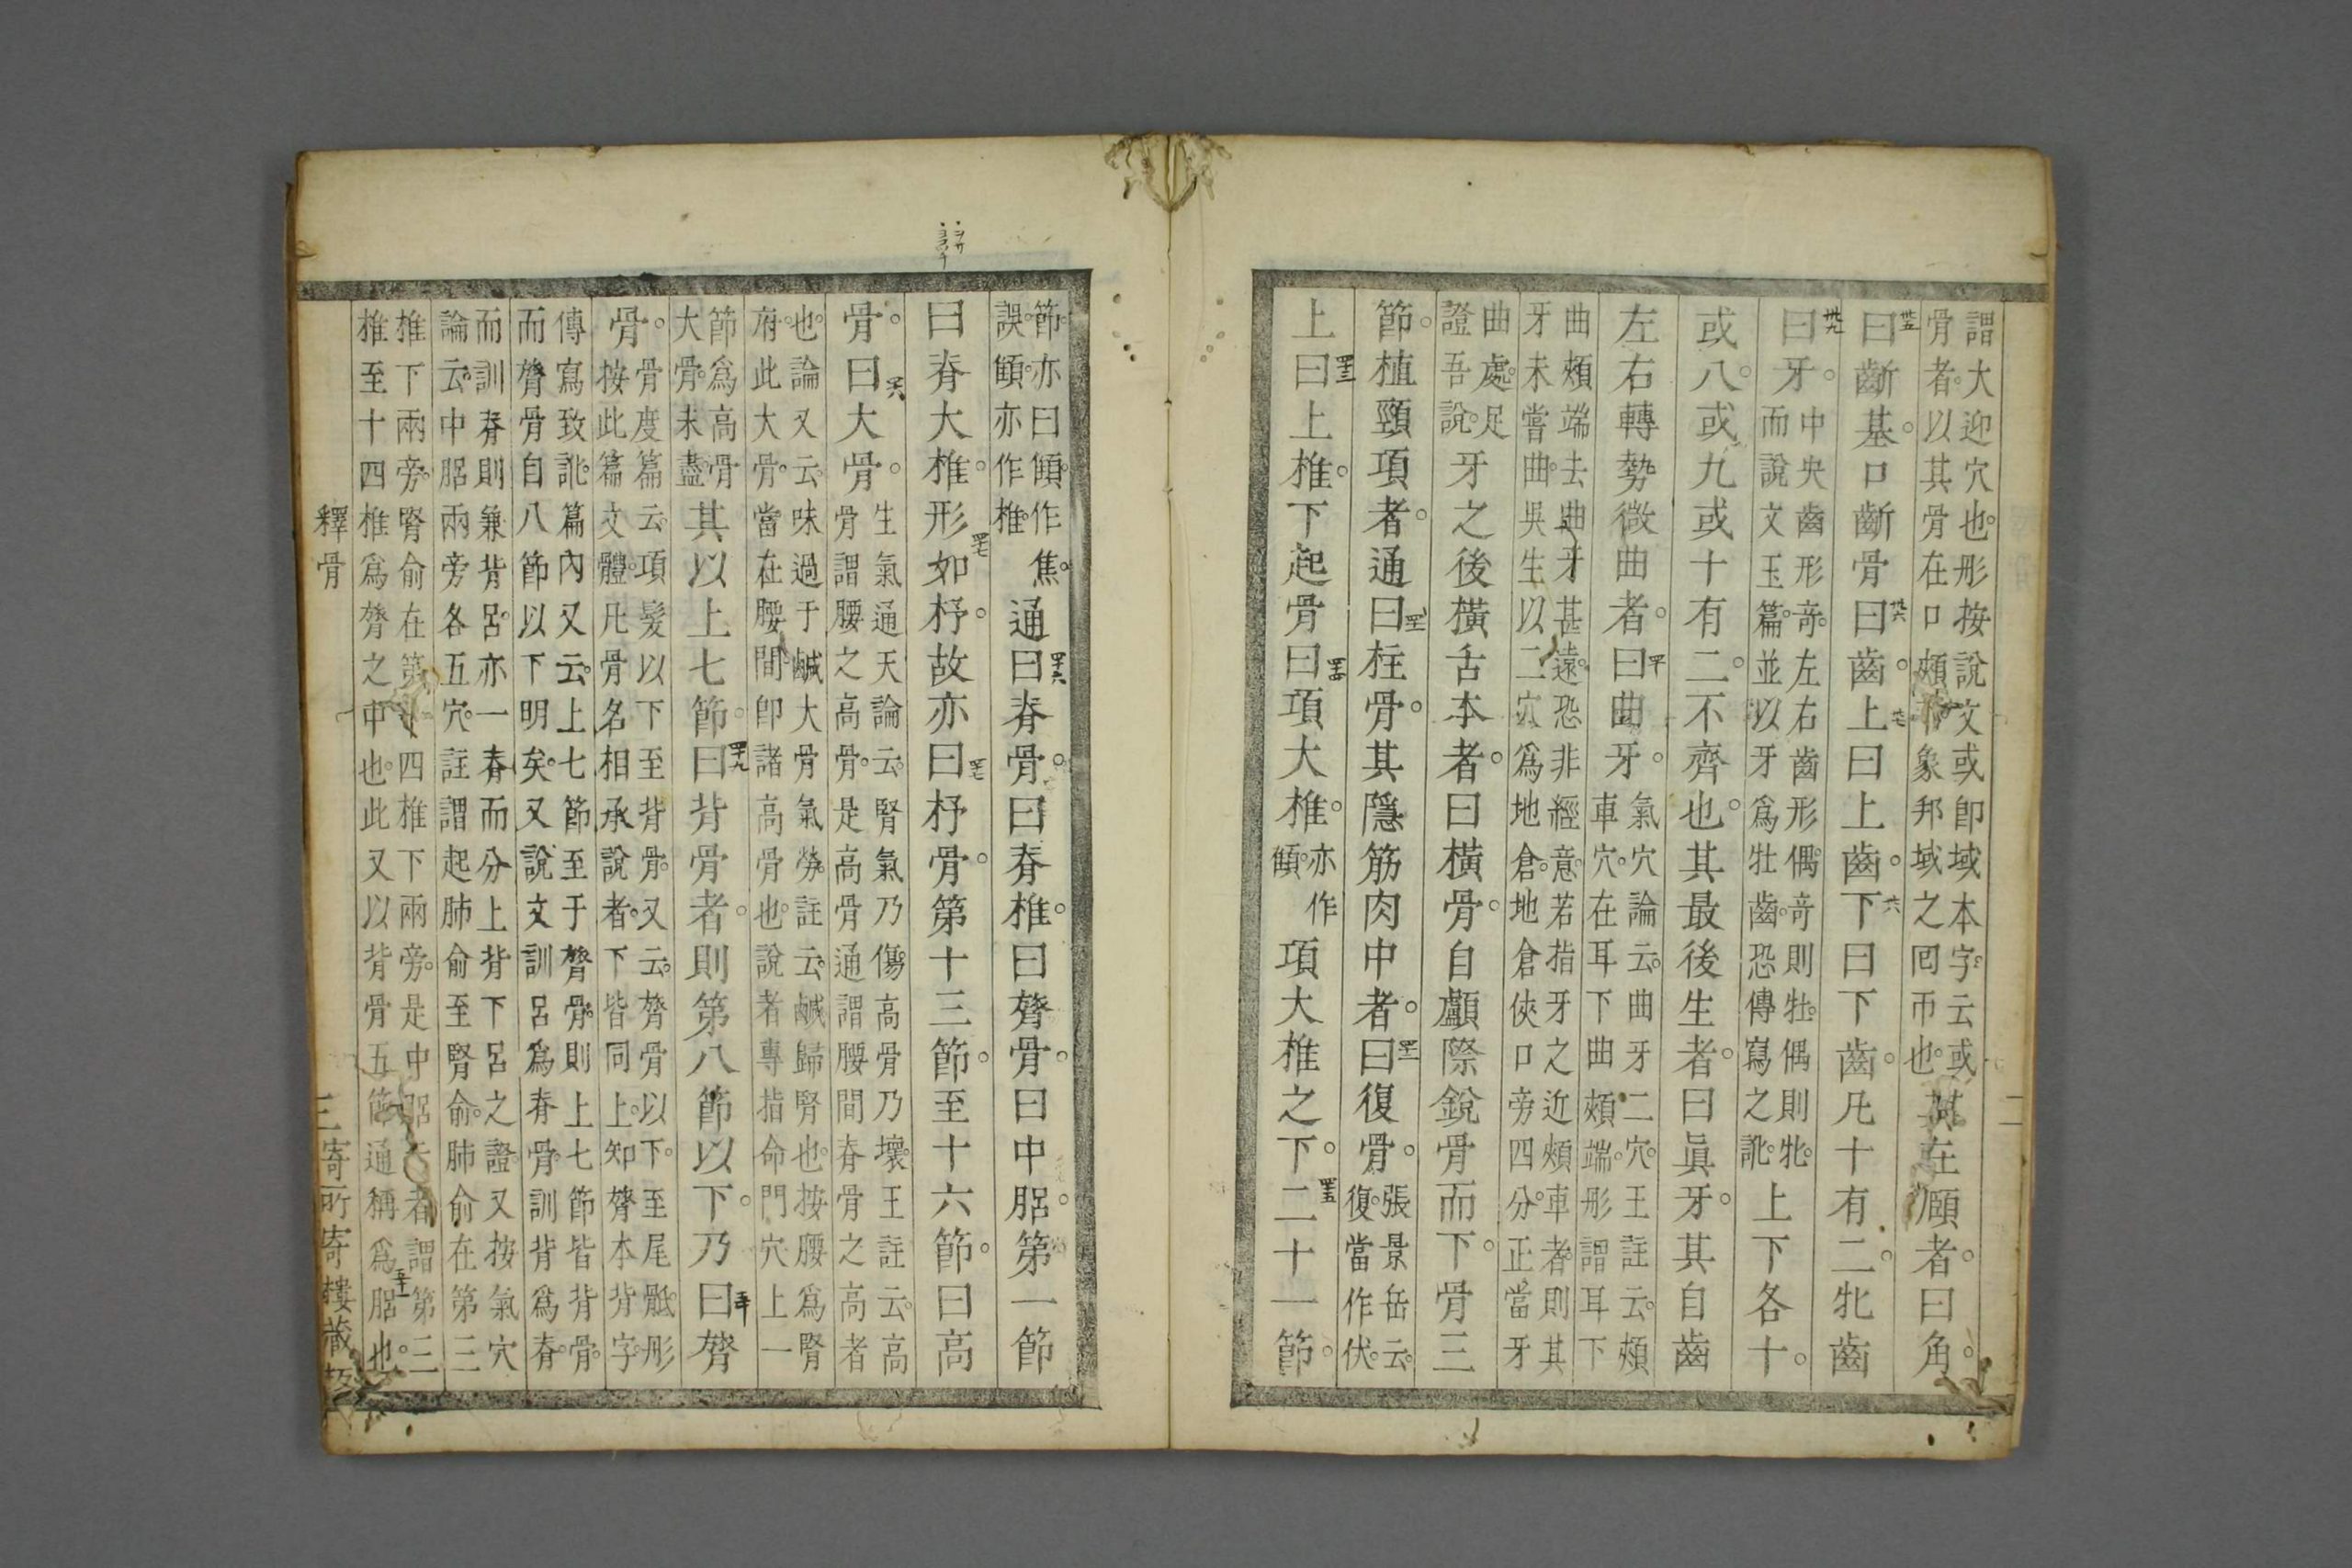 謂大迎穴也。形按說文或卽域本字云或
骨者。以其骨在口頰前象邦域之囘帀也。其在頤者。曰角。
曰齗基。口齗骨曰齒。上曰上齒。下曰下齒。凡十有二。牝齒
曰牙。中央齒形奇。左右齒形偶。奇則牡。偶則牝。
而說文玉篇。並以牙爲牡齒。恐傳寫之訛。上下各十。
或八。或九或十有二。不齊也。其最後生者。曰眞牙。其自齒
左右轉勢微曲者。曰曲牙。氣穴論云。曲牙二穴。王註云。頰
車穴。在耳下曲頰端。形謂耳下
曲頰端去曲牙甚遠。恐非經意。若指牙之近頰車者。則其
牙未嘗曲。吳生以二穴爲地倉。地倉俠口旁四分。正當牙
曲處。足
證吾說。牙之後橫舌本者。曰橫骨。自顱際銳骨而下。骨三
節。植頸項者。通曰柱骨。其隱筋肉中者。曰復骨。張景岳云。
復當作伏。
上曰上椎。下起骨曰項大椎。亦作
項大椎之下。二十一節。
節。亦曰作焦。
誤。亦作椎。通曰脊骨。曰脊椎。曰膂骨。曰中𦛗。第一節
曰脊大椎。形如杼。故亦曰杼骨。第十三節。至十六節。曰高
骨。曰大骨。生氣通天論云。腎氣乃傷。高骨乃壞。王註云。高
骨謂腰之高骨。是高骨通謂腰間脊骨之高者
也。論又云。味過于鹹。大骨氣勞。註云。鹹歸腎也。按腰爲腎
府。此大骨。當在腰間。卽諸高骨也。說者專指命門穴上一
節爲高骨
大骨。未盡其以上七節。曰背骨者。則第八節以下。乃曰膂
骨。骨度篇云。項髮以下至背骨。又云。膂骨以下。至尾骶。形
按此篇文體。凡骨名相承說者。下皆同上。知膂本背字。
傳寫致訛。篇內又云。上七節至于膂骨。則上七節皆背骨。
而膂骨自八節以下明矣。又說文訓呂爲脊骨。訓背爲脊。
而訓脊則兼背呂。亦一脊而分上背下呂之證。又按氣穴
論云。中𦛗兩旁各五穴。註謂起肺俞至腎俞。肺俞在第三
椎下兩旁。腎俞在第十四椎下兩旁。是中𦛗云者。謂第三
椎至十四椎爲膂之中也。此又以背骨五節。通稱爲𦛗也。
釋骨
三
寄所寄樓藏板
二